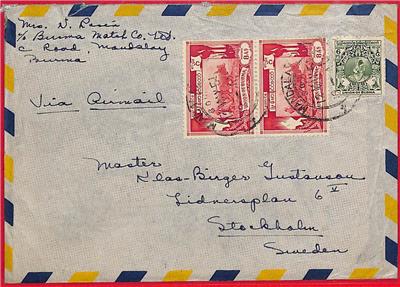 Mrs. N.
c/o Burma Match Co., Ltd.
C Road, Mandalay
Burma
Via Airmail
MANDALAY
Master
Klas-Birger Gustavson
Lidnersplan 6 V
Stockholm
Sweden